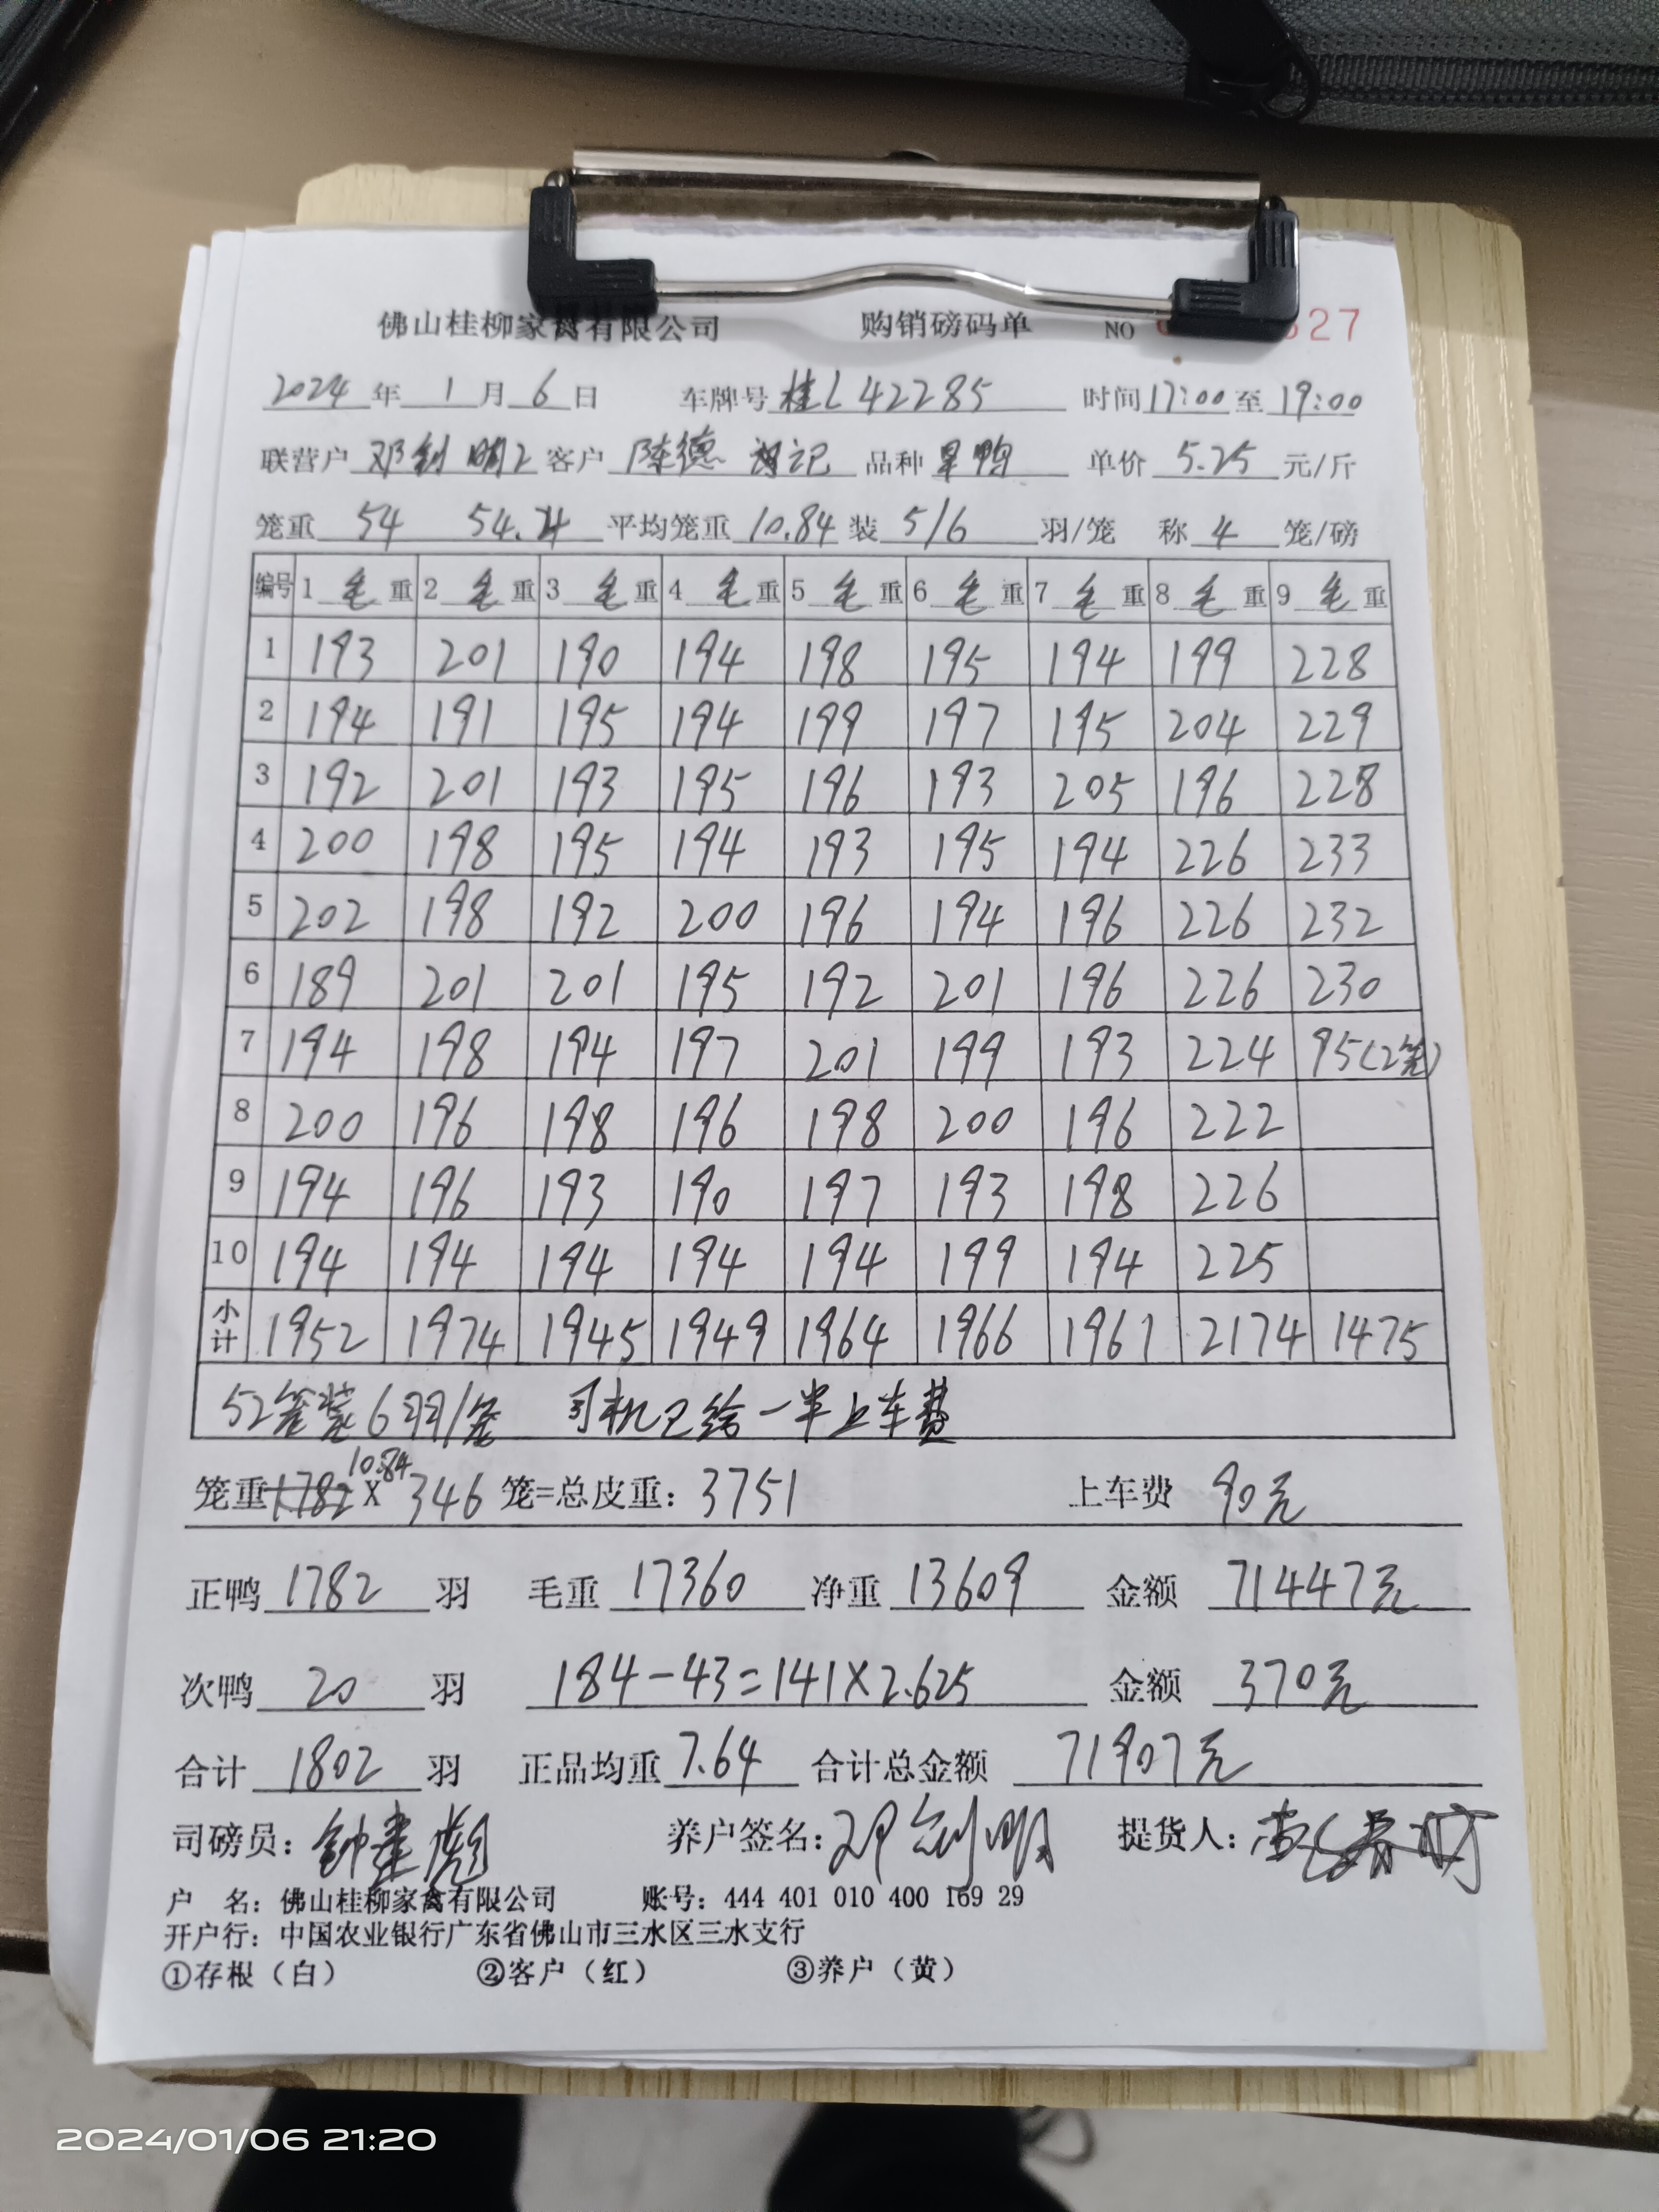 佛山桂柳家禽有限公司 购销磅码单 NO 27
2024年1月6日 车牌号 桂L42285 时间17:00至19:00
联营户 邓剑明2 客户 陈德 记 品种 旱鸭 单价 5.25 元/斤
笼重 54 54.24 平均笼重 10.84 装 5/6 羽/笼 称 4 笼/磅
编号 1 毛 重 2 毛 重 3 毛 重 4 毛 重 5 毛 重 6 毛 重 7 毛 重 8 毛 重 9 毛 重
1 193 201 190 194 198 195 194 199 228
2 194 191 195 194 199 197 195 204 229
3 192 201 193 195 196 193 205 196 228
4 200 198 195 194 193 195 194 226 233
5 202 198 192 200 196 194 196 226 232
6 189 201 201 195 192 201 196 226 230
7 194 198 194 197 201 199 193 224 95(2笼)
8 200 196 198 196 198 200 196 222
9 194 196 193 190 197 193 198 226
10 194 194 194 194 194 199 194 225
小计 1952 1974 1945 1949 1964 1966 1961 2174 1475
52笼装6羽/笼 司机已给一半上车费
笼重 1782 10.84 X 346 笼=总皮重：3751 上车费 90元
正鸭 1782 羽 毛重 17360 净重 13609 金额 71447元
次鸭 20 羽 184-43=141X2.625 金额 370元
合计 1802 羽 正品均重 7.64 合计总金额 71907元
司磅员：钟建彪 养户签名：邓剑明 提货人：
户 名：佛山桂柳家禽有限公司 账号：444 401 010 400 169 29
开户行：中国农业银行广东省佛山市三水区三水支行
①存根（白） ②客户（红） ③养户（黄）
2024/01/06 21:20